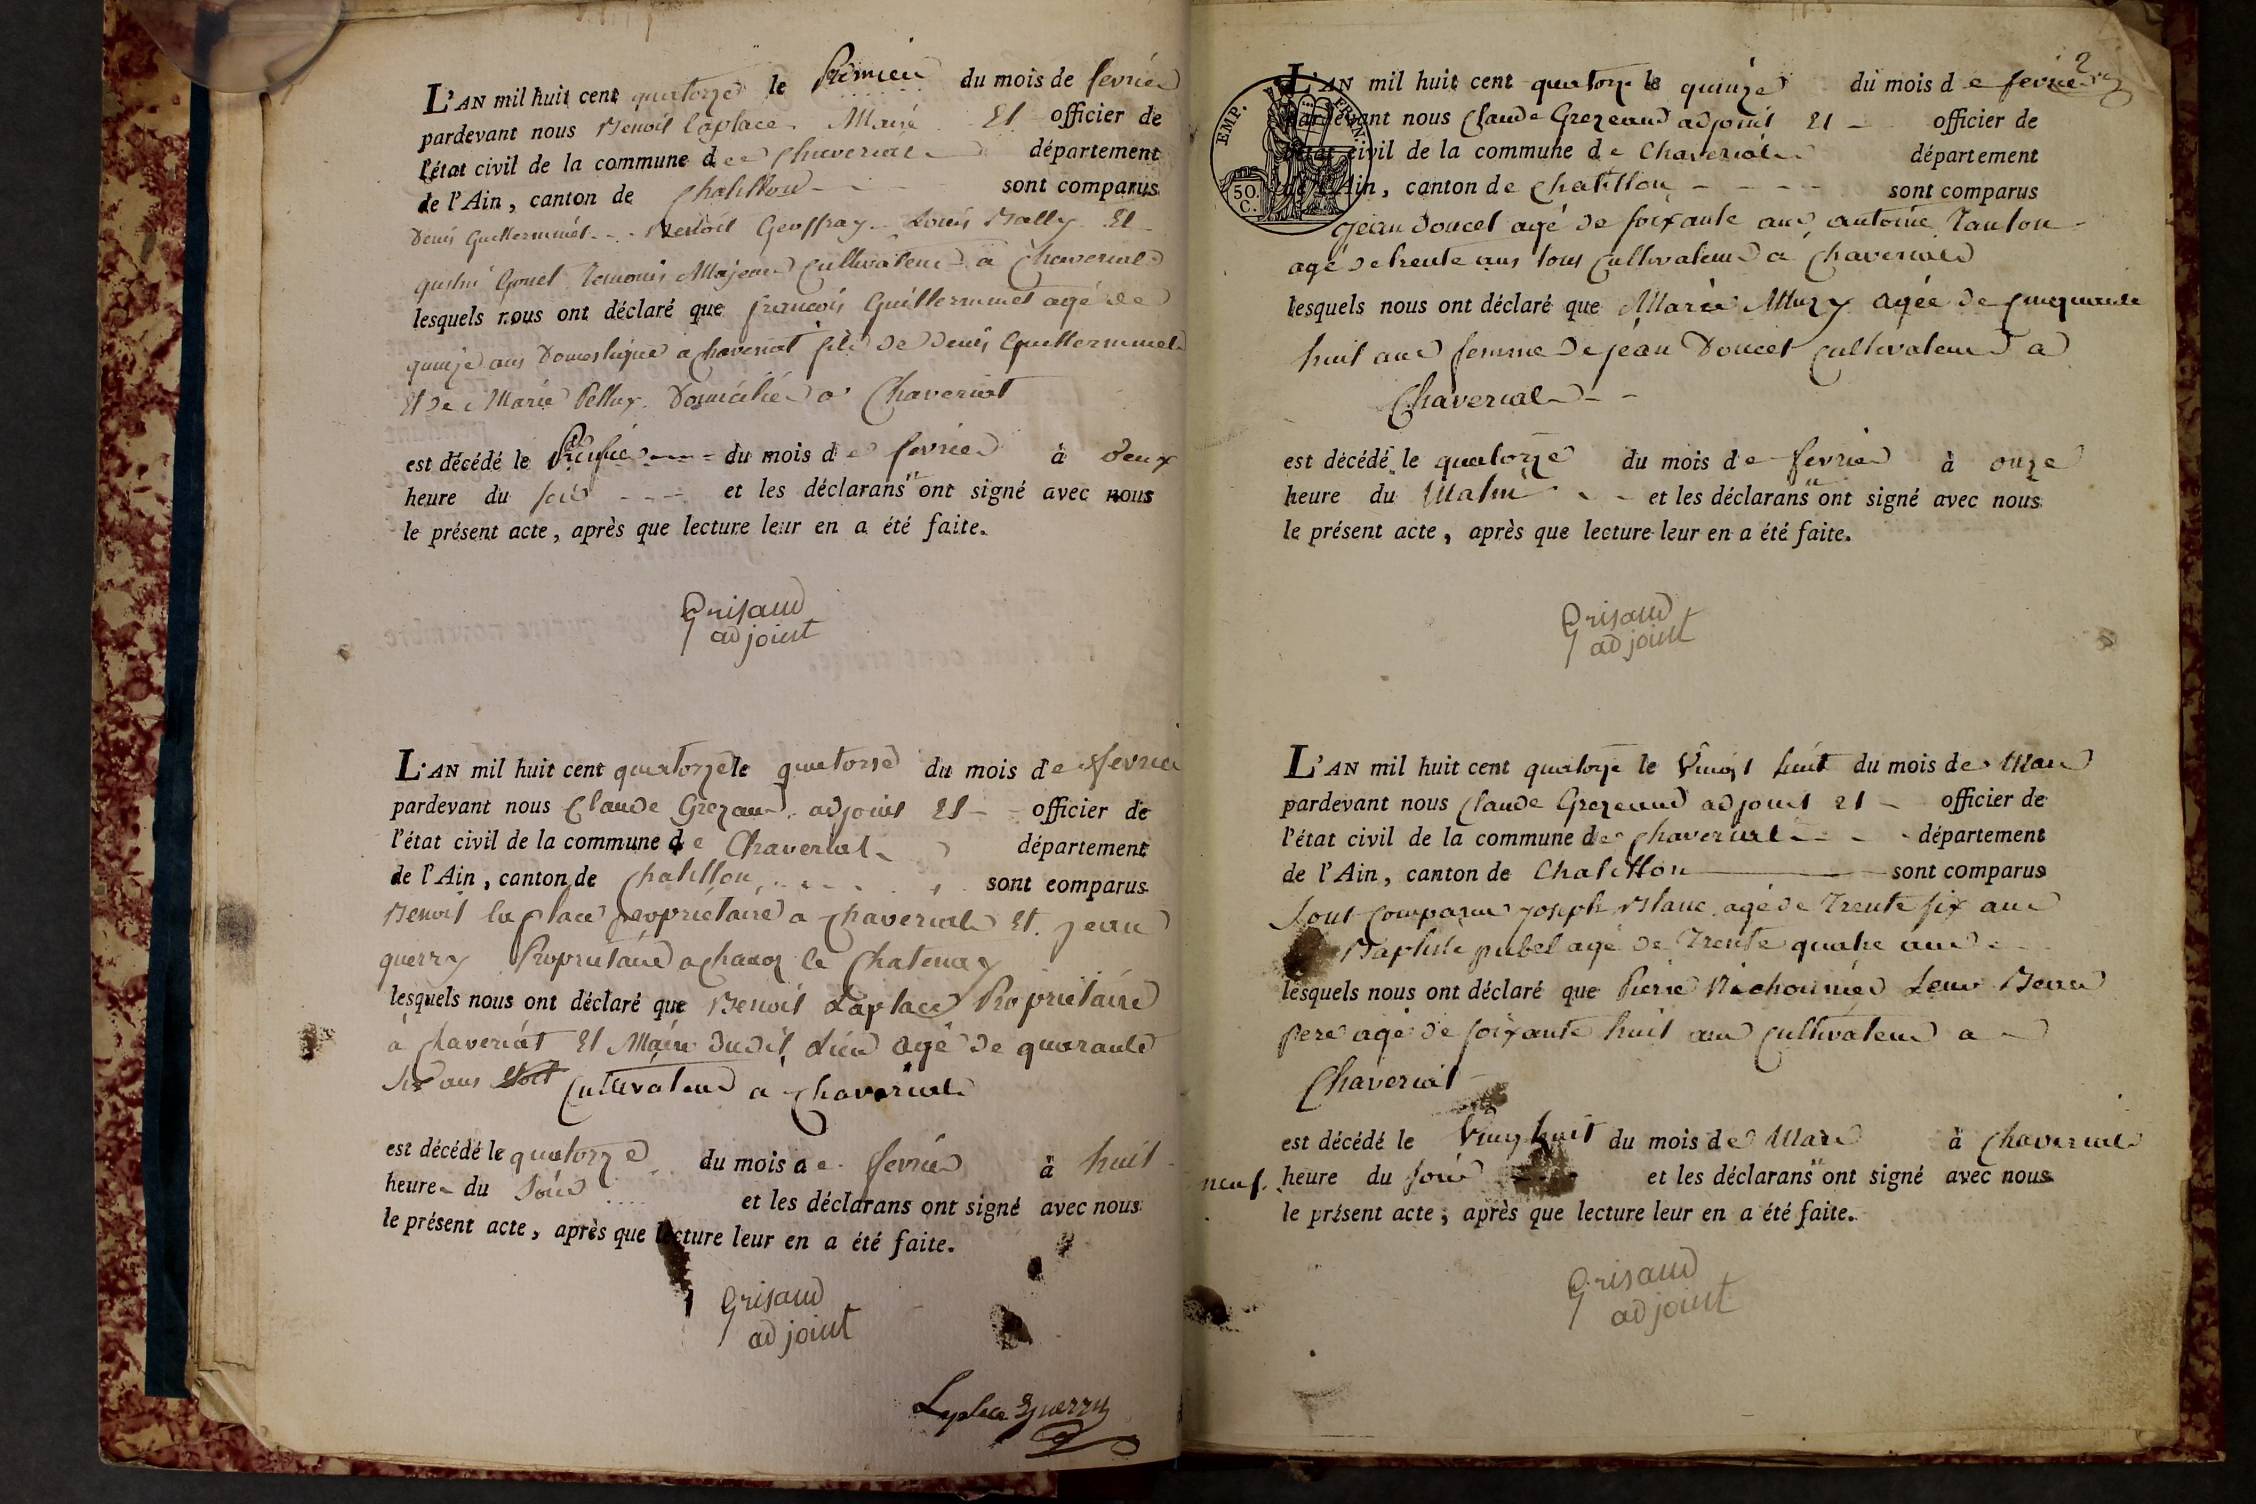 L'AN mil huit cent quatorze le Premier du mois de fevrier
pardevant nous Benoit laplace Maire Et officier de
l'état civil de la commune de Chaveriat département
de l'Ain, canton de Chatillon sont comparus
Denis Guillerminet Benoit Geoffray Louis Bally Et
Gonet temoins Majeurs Cultivateurs a Chaveriat
lesquels nous ont déclaré que françois Guillerminet agé de
quinze ans Domestique a chaveriat fils de Denis Guillerminet
Et De Marie Pelluy Domiciliés a Chaveriat
est décédé le du mois de fevrier à deux
heure du soir et les déclarans nt ont signé avec nous
le présent acte, après que lecture leur en a été faite.
Grisaud
adjoint
L'AN mil huit cent quatorze le quatorse du mois de fevrier
pardevant nous Claude Grezaud adjoint Et officier de
l'état civil de la commune de Chaveriat département
de l'Ain, canton de Chatillon sont comparus
Benoit la place propriétaire a chaveriat Et jean
guerry Propriétaire a chanoz le Chatenay
lesquels nous ont déclaré que Benoit Laplace Propriétaire
à chaveriat Et Maire dudit Lieu agé de quarante
six ans Cultivateur a chaveriat
est décédé le quatorze du mois de fevrier à huit
heure du Soir et les déclarans ont signé avec nous
le présent acte, après que lecture leur en a été faite.
Grisaud
adjoint
Laplace Guerry
2
TIMP. 50. C.
L'AN mil huit cent quatorze le quinze du mois de fevrier
pardevant nous Claude Grezeaud adjoint Et officier de
l'état civil de la commune de Chaveriat département
de l'Ain, canton de Chatillon sont comparus
jean Doucet agé de soixante ans, antoine Tanton
agé de trente ans tous cultivateurs a Chaveriat
lesquels nous ont déclaré que Marie Muzy agée de cinquante
huit ans femme de jean Doucet cultivateur a
Chaveriat
est décédé le quatorze du mois de fevrier à onze
heure du Matin et les déclarans nt ont signé avec nous
le présent acte, après que lecture leur en a été faite.
Grisaud
adjoint
L'AN mil huit cent quatorze le Vingt huit du mois de Mars
pardevant nous Claude Grezeaud adjoint Et officier de
l'état civil de la commune de chaveriat département
de l'Ain, canton de Chatillon sont comparus
Sont Comparus joseph Blanc agé de Trente six ans
Baptiste pubel agé de Trente quatre ans
lesquels nous ont déclaré que Pierre Leur Beau
pere agé de soixante huit ans Cultivateur a
Chaveriat
est décédé le Vingt huit du mois de Mars à chaveriat
neuf. heure du soir et les déclarans nt ont signé avec nous
le présent acte, après que lecture leur en a été faite.
Grisaud
adjoint